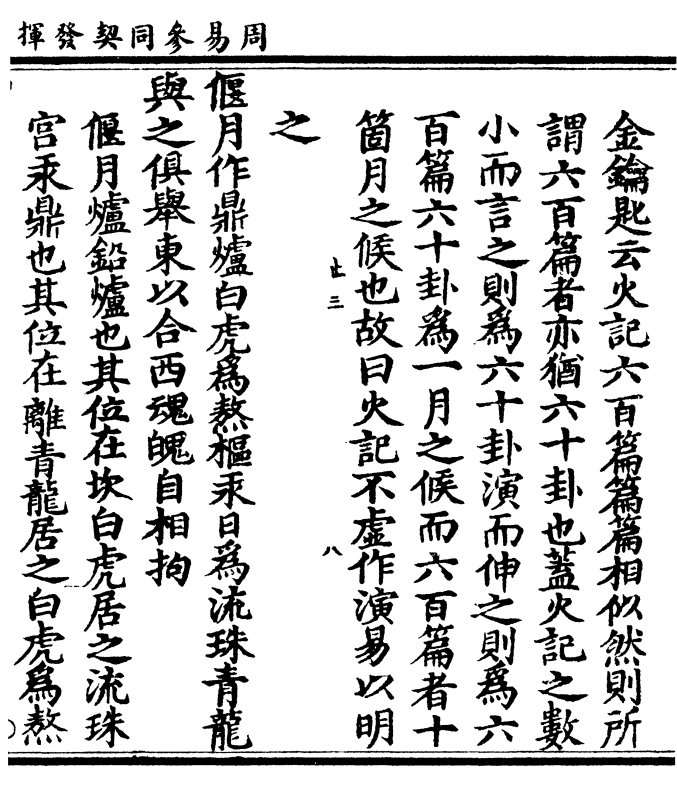 周易參同契發揮
金鑰匙云火記六百篇篇篇相似然則所
謂六百篇者亦猶六十卦也蓋火記之數
小而言之則爲六十卦演而伸之則爲六
百篇六十卦爲一月之候而六百篇者十
箇月之候也故曰火記不虛作演易以明
之
止三
八
偃月作鼎爐白虎爲熬樞汞日爲流珠青龍
與之俱舉東以合西魂魄自相拘
偃月爐鉛爐也其位在坎白虎居之流珠
宮汞鼎也其位在離青龍居之白虎爲熬